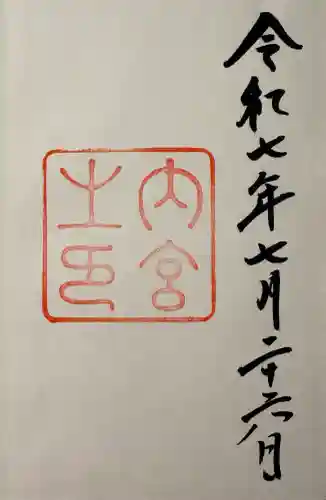 令和七年七月二十六日
内宮
之印